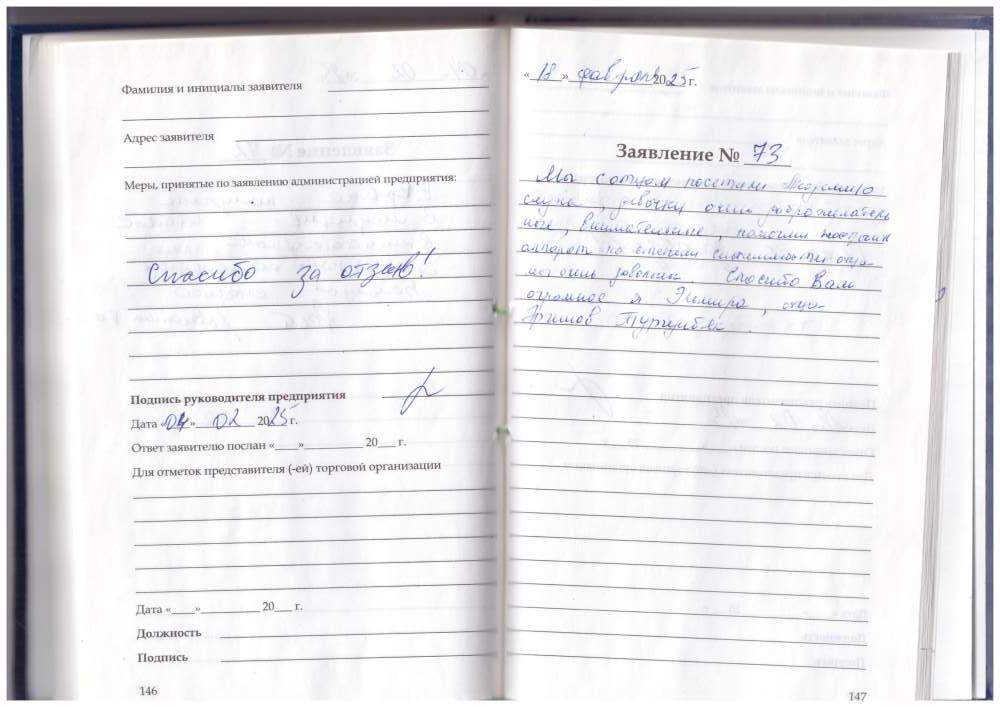 Фамилия и инициалы заявителя
Адрес заявителя
Меры, принятые по заявлению администрацией предприятия:
Спасибо за отзыв!
Подпись руководителя предприятия
Дата «04» 02 2025 г.
Ответ заявителю послан «___»__________ 20___ г.
Для отметок представителя (-ей) торговой организации
Дата «____»__________ 20___ г.
Должность
Подпись
146
« 18 » февраля 2025 г.
Заявление № 73
Мы с отцом посетили Академию
слуха, девочки очень доброжелатель
ные, внимательные, помогли
аппарат по
очень Спасибо Вам
огромное я Эльмира,
Тургунбек.
147